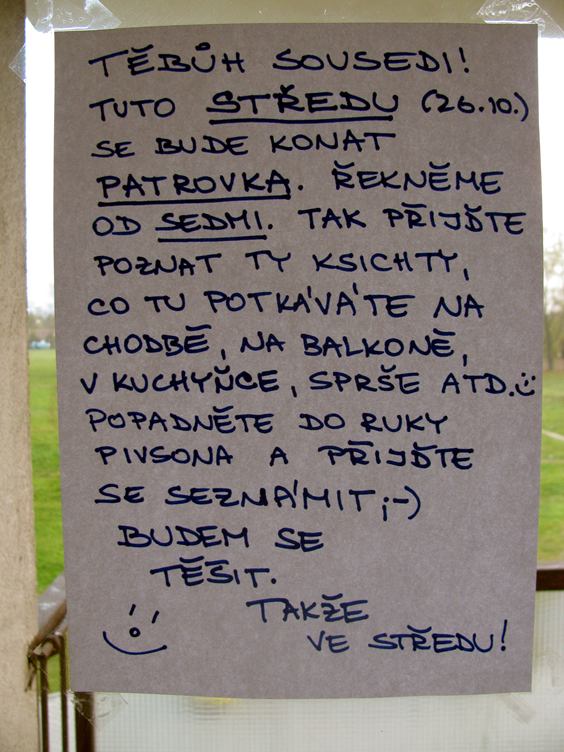 TĚBŮH SOUSEDI!
TUTO STŘEDU (26.10.)
SE BUDE KONAT
PATROVKA. ŘEKNĚME
OD SEDMI. TAK PŘIJĎTE
POZNAT TY KSICHTY,
CO TU POTKÁVÁTE NA
CHODBĚ, NA BALKONĚ,
V KUCHYŇCE, SPRŠE ATD.:)
POPADNĚTE DO RUKY
PIVSONA A PŘIJĎTE
SE SEZNÁMIT ;-)
BUDEM SE
TĚŠIT.
TAKŽE
VE STŘEDU!